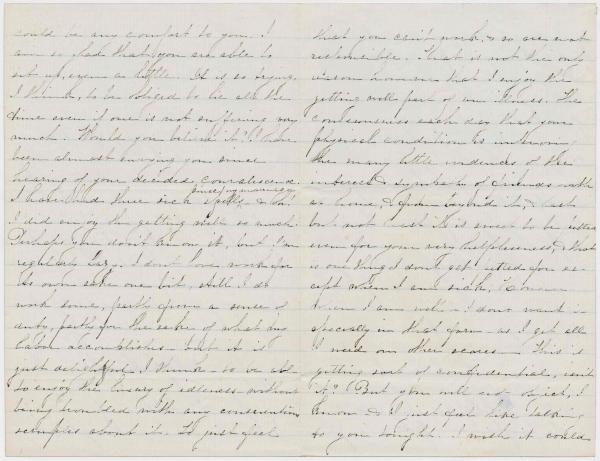 could be any comfort to you. I
am so glad that you are able to
sit up, even a little. It is so trying,
I think, to be obliged to lie all the
time even if one is not suffering very
much. Would you believe it? I have
been almost envying you since
hearing of your decided convalescence.
since my marriage
I have had three sick spells & oh!
I did enjoy the getting well so much.
Perhaps you don't know it, but I'm
regularly lazy. I don't love work for
its own sake one bit, still I do
work some, partly from a sense of
duty, partly for the sake of what my
labor accomplishes - but it is
just delightful I think - to be able
to enjoy the luxury of idleness without
being troubled with any conscientious
scruples about it. To just feel
that you can't work, & so are not
responsible. That is not the only
reason however that I enjoy the
getting well part of an illness. The
consciousness each day that your
physical condition is improving,
the many little evidences of the
interest & sympathy of friends both
at home, & from outside it, & last
but not least it is sweet to be petted
even for your very helplessness, & that
is one thing I don't get petted for ex-
cept when I am sick, However
when I am well - I don't want it
specially in that form - as I get all
I need on other scores - This is
getting sort of confidential, isn't
it? But you will not object, I
know & I just feel like talking
to you tonight. I wish it could